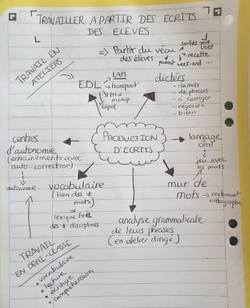 TRAVAILLER A PARTIR DES ECRITS
DES ELEVES
TRAVAIL EN
ATELIERS
Partir du vécu
des élèves
sorties
recette
week-end
EDL
LAM
transpose
manip
dictées
- de mots
- de phrases
- à corriger
- négociée
- bilan
centres
d'autonomie
(entraînements avec
auto-correction)
autonomie
PRODUCTION
D'ECRITS
langage
oral
jeu avec
les mots
vocabulaire
(lien des
mots)
lexique
disciplines
mur de
mots
orthographe
analyse grammaticale
de leurs phrases
(en atelier dirigé)
TRAVAIL
EN DEMI-CLASSE
• vocabulaire
• lecture
• écriture
• compréhension